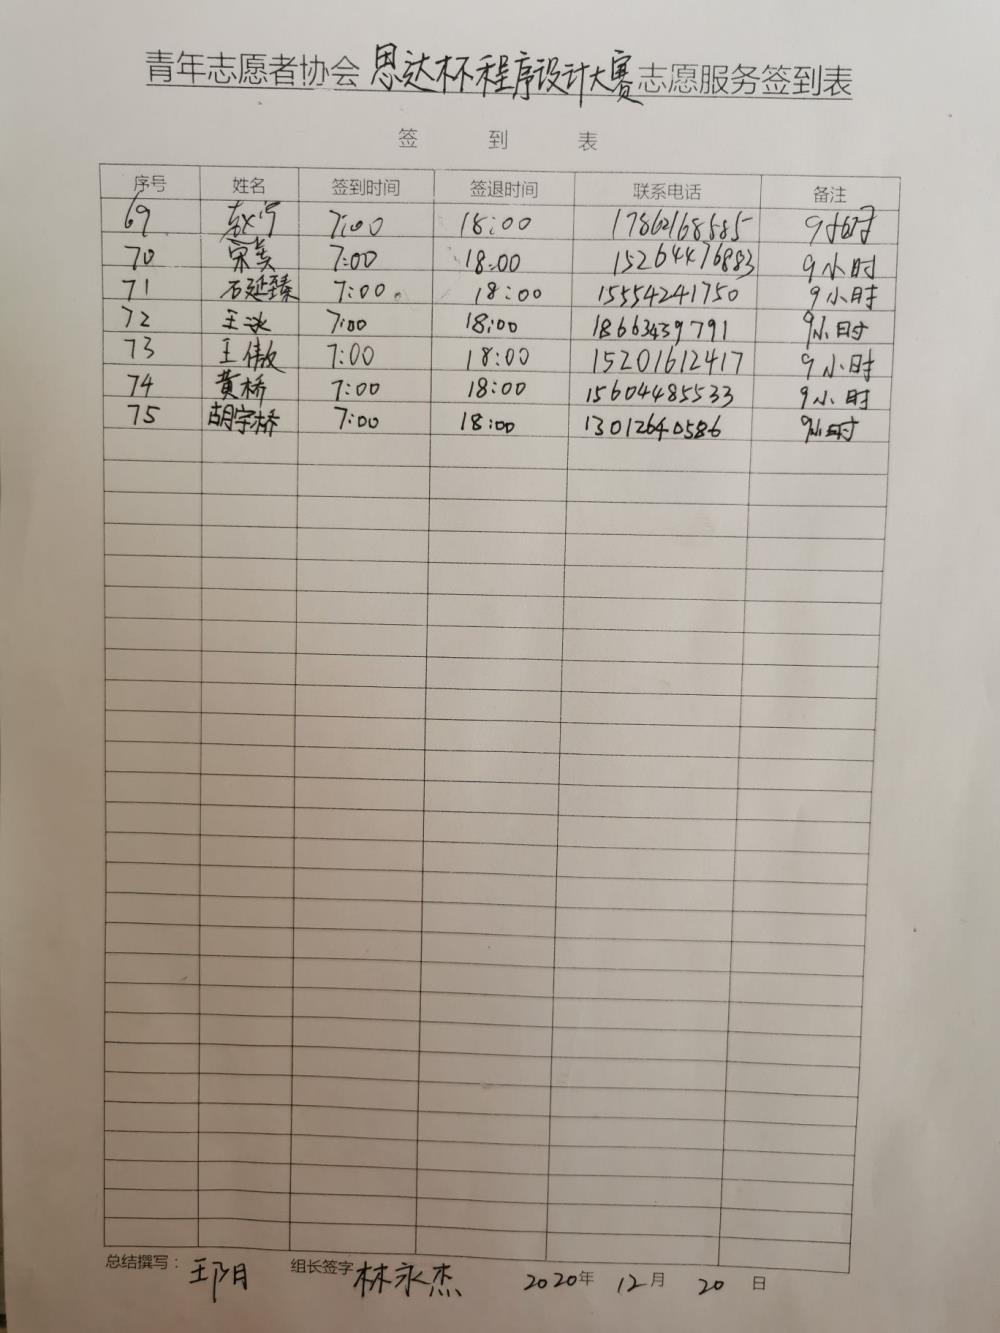 青年志愿者协会 思达杯程序设计大赛 志愿服务签到表
签 到 表
序号 姓名 签到时间 签退时间 联系电话 备注
69 赵宁 7:00 18:00 17862168585 9小时
70 宋美 7:00 18:00 15264476883 9小时
71 石延臻 7:00 18:00 15554241750 9小时
72 王冰 7:00 18:00 18663439791 9小时
73 王傲 7:00 18:00 15201612417 9小时
74 黄桥 7:00 18:00 15604485533 9小时
75 胡宇桥 7:00 18:00 13012640586 9小时
总结撰写： 王阳 组长签字 林永杰 2020年 12月 20日